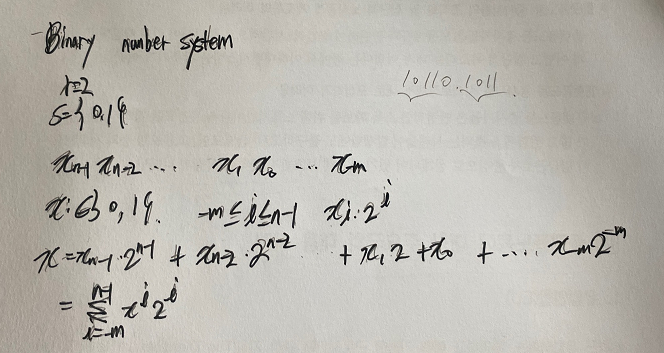 - Binary number system
r=2
S={0,1}
10110.1011
xₙ₋₁ xₙ₋₂ ... x₁ x₀ ... x₋ₘ
xᵢ∈{0,1}. -m≤i≤n-1 xᵢ·2ⁱ
x=xₙ₋₁·2ⁿ⁻¹ + xₙ₋₂·2ⁿ⁻² + x₁2+x₀ + .... x₋ₘ2⁻ᵐ
= Σᵢ₌₋ₘⁿ⁻¹ xⁱ2ⁱ